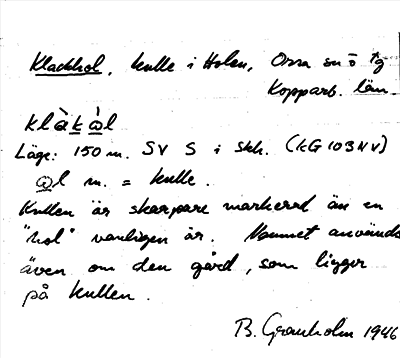 Klackhol, kulle i Holen, Orsa sn o tg
Kopparb. län.
klàkàl
Läge: 150 m. SV S i Skh. (KG 103 NV)
al m. = kulle.
Kullen är skarpare markerad än en
"hol" vanligen är. Namnet används
även om den gård, som ligger
på kullen.
B. Granholm 1946